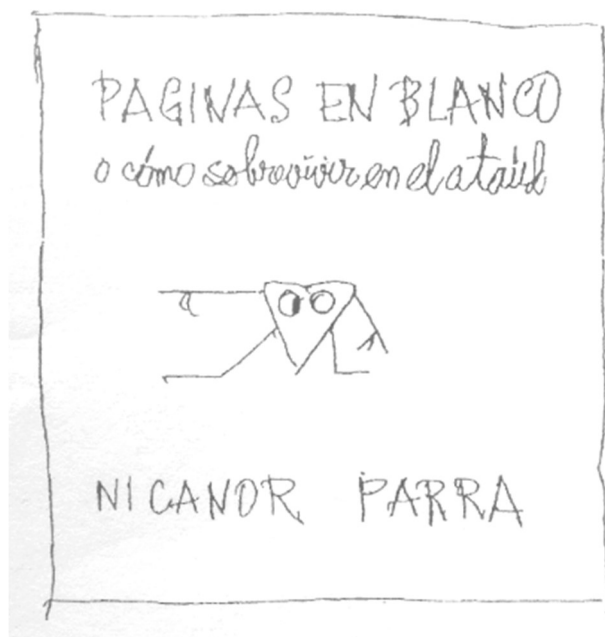 PAGINAS EN BLANCO
o cómo sobrevivir en el ataúd
NICANOR PARRA